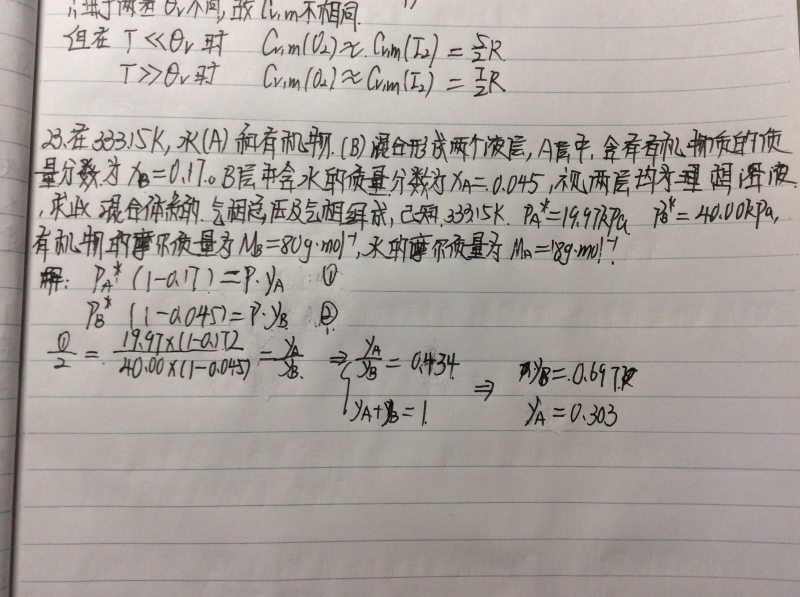 由于两者 θv不同,故 Cv,m不相同.
但在 T<<θv时 Cv,m(O2)≈Cv,m(I2)=5/2R
T>>θv时 Cv,m(O2)≈Cv,m(I2)=7/2R
23.在333.15K,水(A)和有机物(B)混合形成两个液层,A层中,含有有机物质的质
量分数为 xB=0.17。B层中含水的质量分数为xA=0.045,视两层均为理想溶液.
,求此混合体系的气相总压及气相组成,已知333.15K. PA*=19.97kPa PB*=40.00kPa,
有机物的摩尔质量为MB=80g·mol-1,水的摩尔质量为 MA=18g·mol-1?
解: PA*(1-0.17)=P·yA ①
PB*(1-0.045)=P·yB ②
①/2 = 19.97×(1-0.17)/40.00×(1-0.045) = yA/yB ⇒ yA/yB=0.434 ⇒ yB=0.697
yA+yB=1 yA=0.303